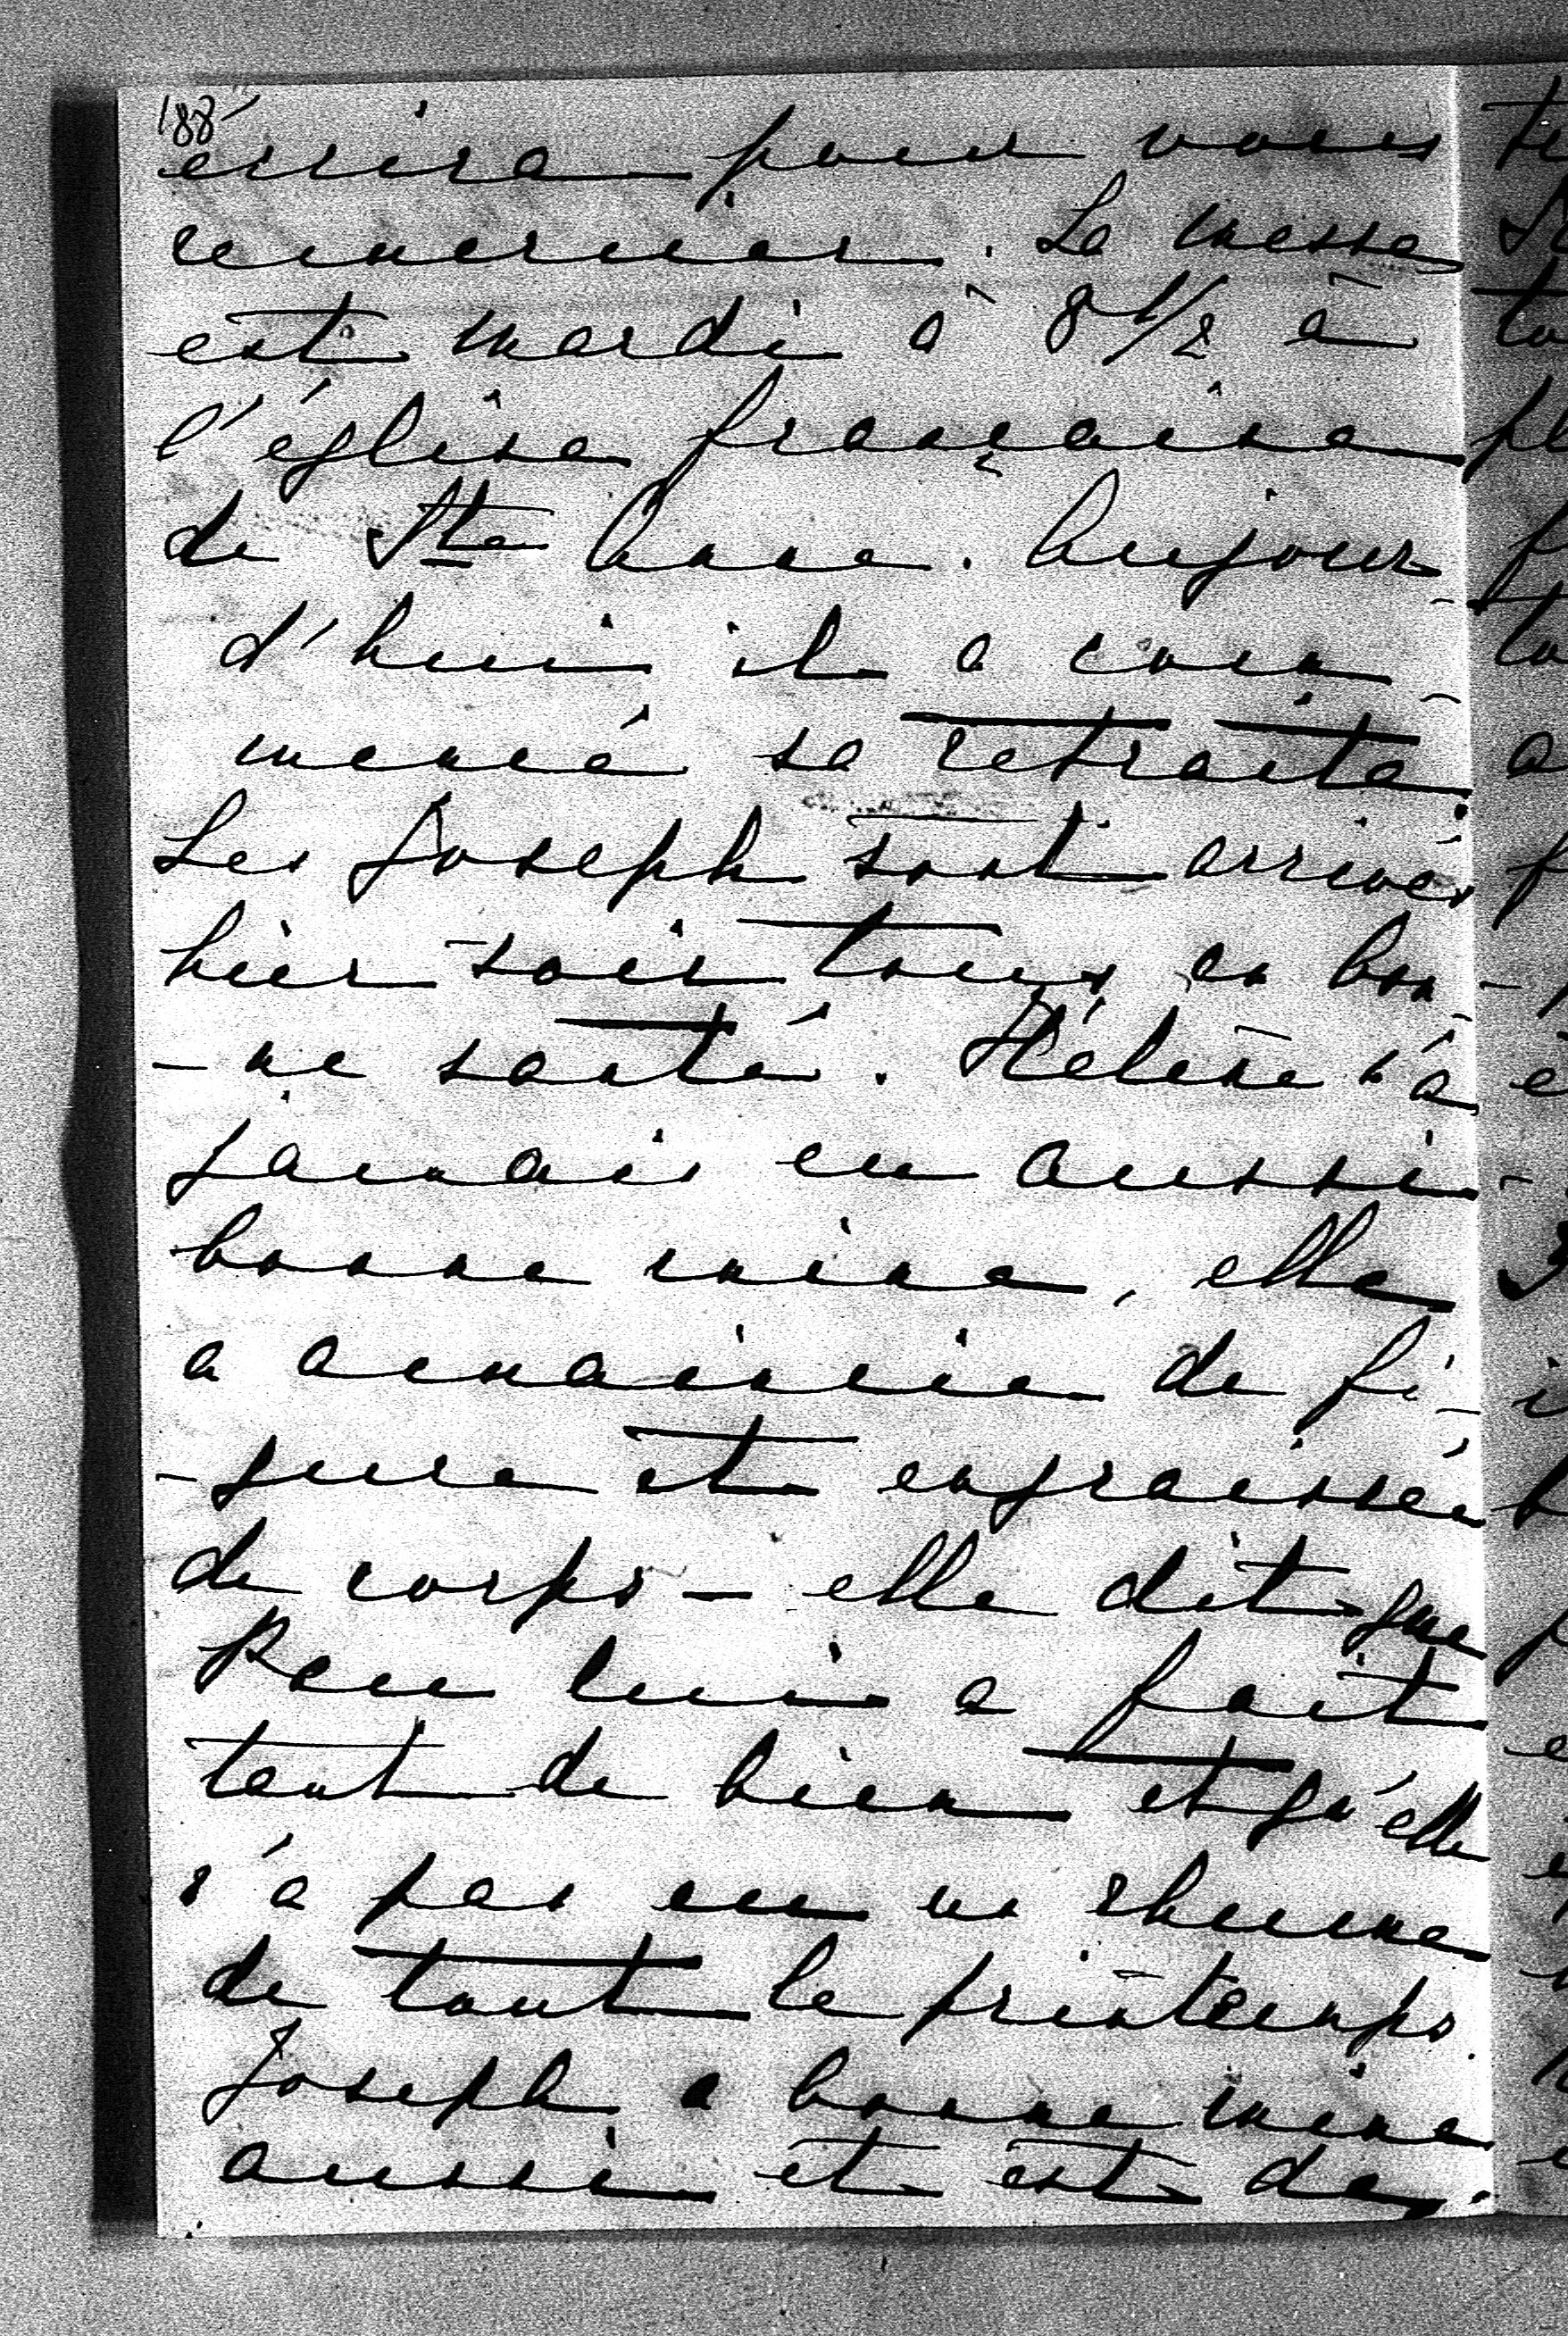 188
écrira pour vous
remercier. La messe
est mardi à 8 1/2 à
l'église française
de Ste Anne. Aujour-
d'hui il a com-
mencé sa retraite.
Les Joseph sont arrivés
hier soir tous en bon-
-ne santé. Hélène n'a
jamais eu aussi
bonne mine, elle
a amaincie de fi-
-gure et engraissée
de corps - elle dit que
Pau lui a fait
tant de bien et qu'elle
n'a pas eu un rhume
de tout le printemps.
Joseph a bonne mine
aussi et est de